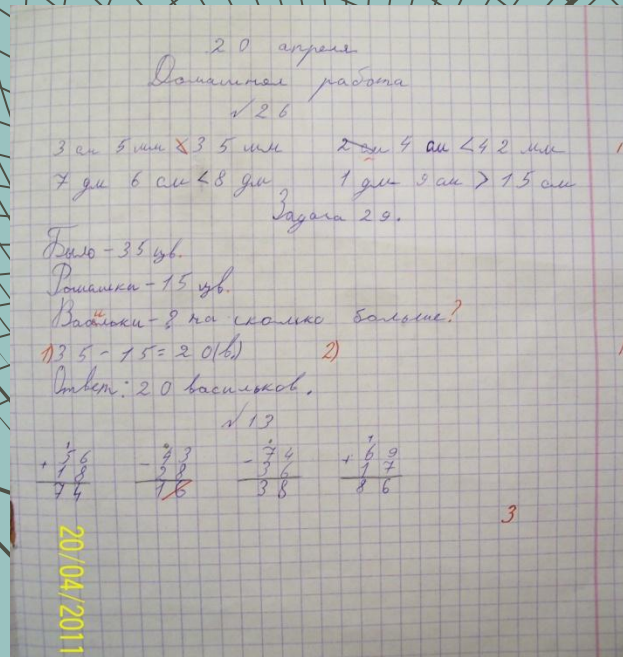 20 апреля
Домашняя работа
№26
3 см 5 мм < 35 мм 4 см < 42 мм
7 дм 6 см < 8 дм 1 дм 9 см > 15 см
Задача 29.
Было - 35 цв.
Ромашки - 15 цв.
Васильки - ? на сколько больше?
1) 35 - 15 = 20 (в.) 2)
Ответ: 20 васильков.
№13
+ 56 - 43 - 74 + 69
18 28 36 17
74 16 38 86
3
20/04/2011